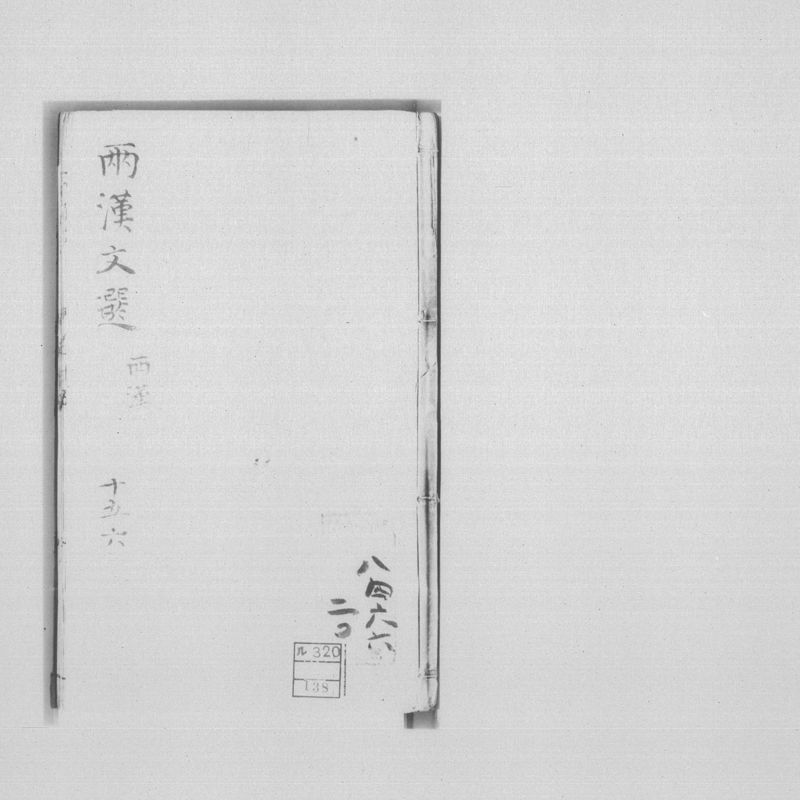 兩漢文選
西漢
十五六
八四六六
二〇
ル 320
138